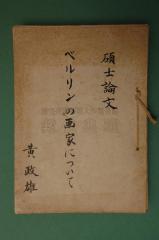 碩士論文
ベルリンの画家について
黄政雄